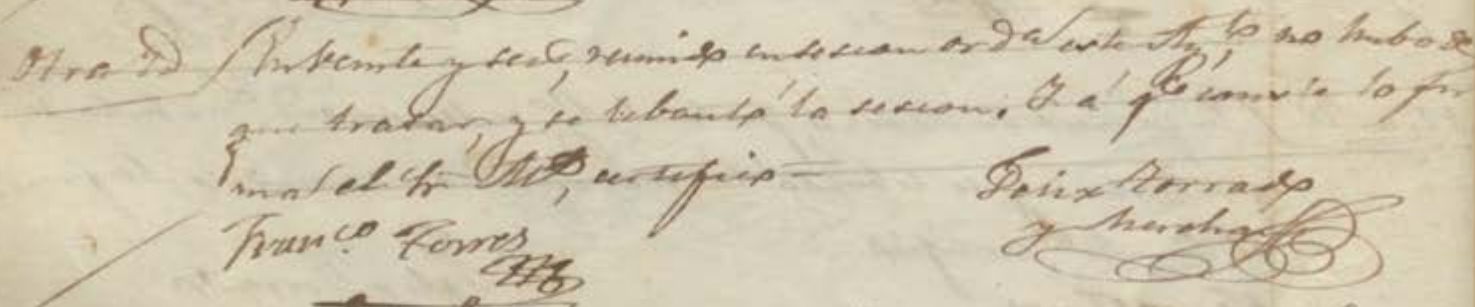 Otra id En veinte y seis, reunido en sesion ord.a este Ay.to no hubo de
que tratar, y se lebantó la sesion. Y á q.e conste lo fir
ma el Sr. Pte, certifico
Felix Torrado
Fran.co Torres y